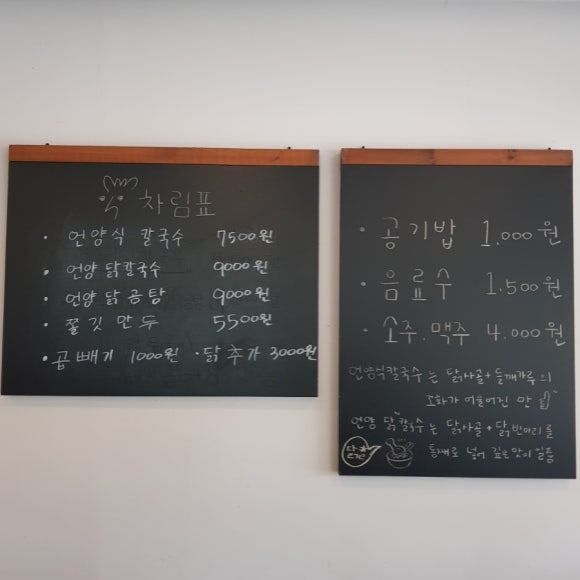 차림표
· 언양식 칼국수 7500원
· 언양 닭칼국수 9000원
· 언양 닭곰탕 9000원
· 쫄깃만두 5500원
· 곱빼기 1000원 · 닭추가 3000원
· 공기밥 1.000원
· 음료수 1.500원
· 소주.맥주 4.000원
언양식칼국수는 닭사골+들깨가루의
조화가 어우러진 맛
언양 닭칼국수는 닭사골+닭반마리를
통째로 넣어 깊은맛이 일품